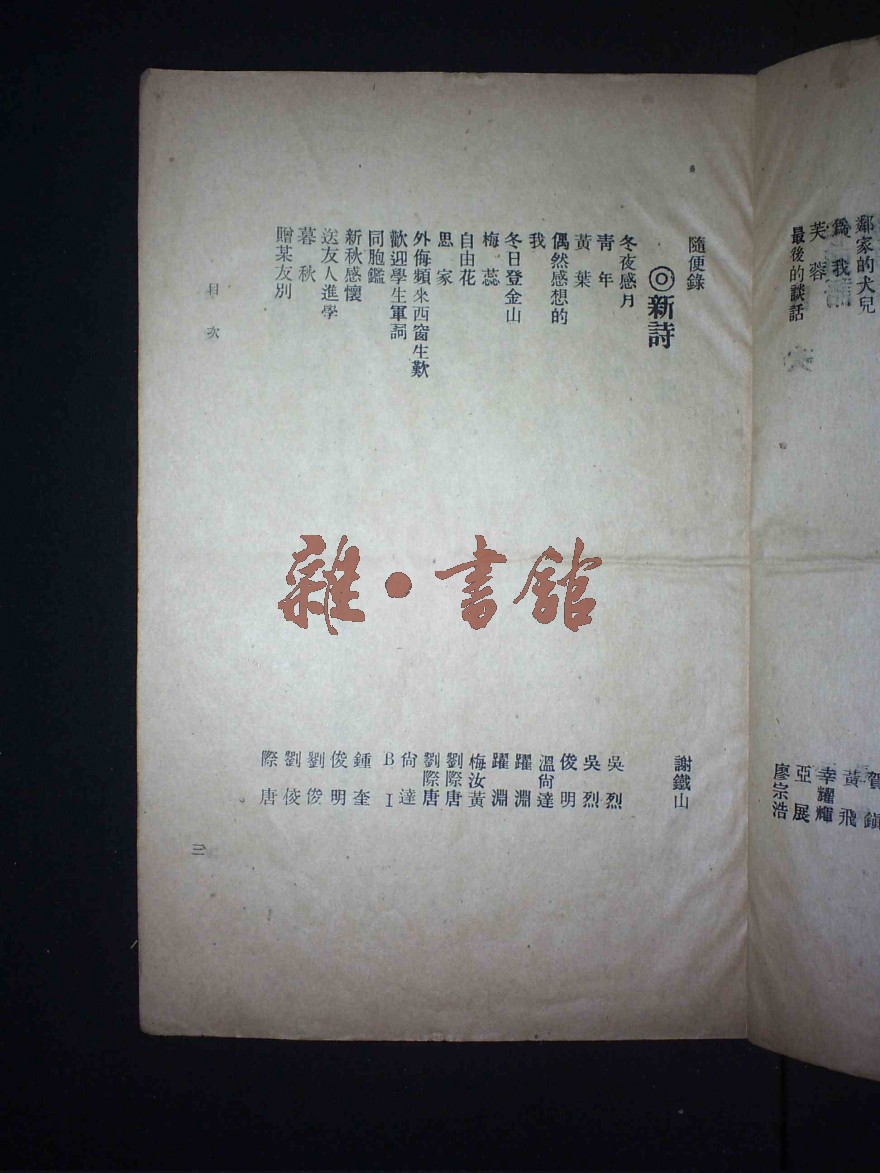 鄰家的犬兒
爲我
芙蓉
最後的談話
賀鎮
黃飛
幸耀輝
亞展
廖宗浩
隨便錄 謝鐵山
◎新詩
冬夜感月 吳烈
靑年 吳烈
黃葉 俊明
偶然感想的 溫尙達
我 躍淵
冬日登金山 躍淵
梅蕊 梅汝黃
自由花 劉際唐
思家 劉際唐
外侮頻來西窗生歎 尙達
歡迎學生軍詞 BI
同胞鑑 鍾奎
新秋感懷 俊明
送友人進學 劉俊
暮秋 劉俊
贈某友別 際唐
目次
三
雜·書館